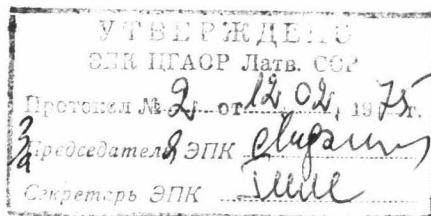 УТВЕРЖДЕНО
ЭПК ЦГАОР Латв. ССР
Протокол № 2 от 12.02. 1975г.
Председатель ЭПК
Секретарь ЭПК